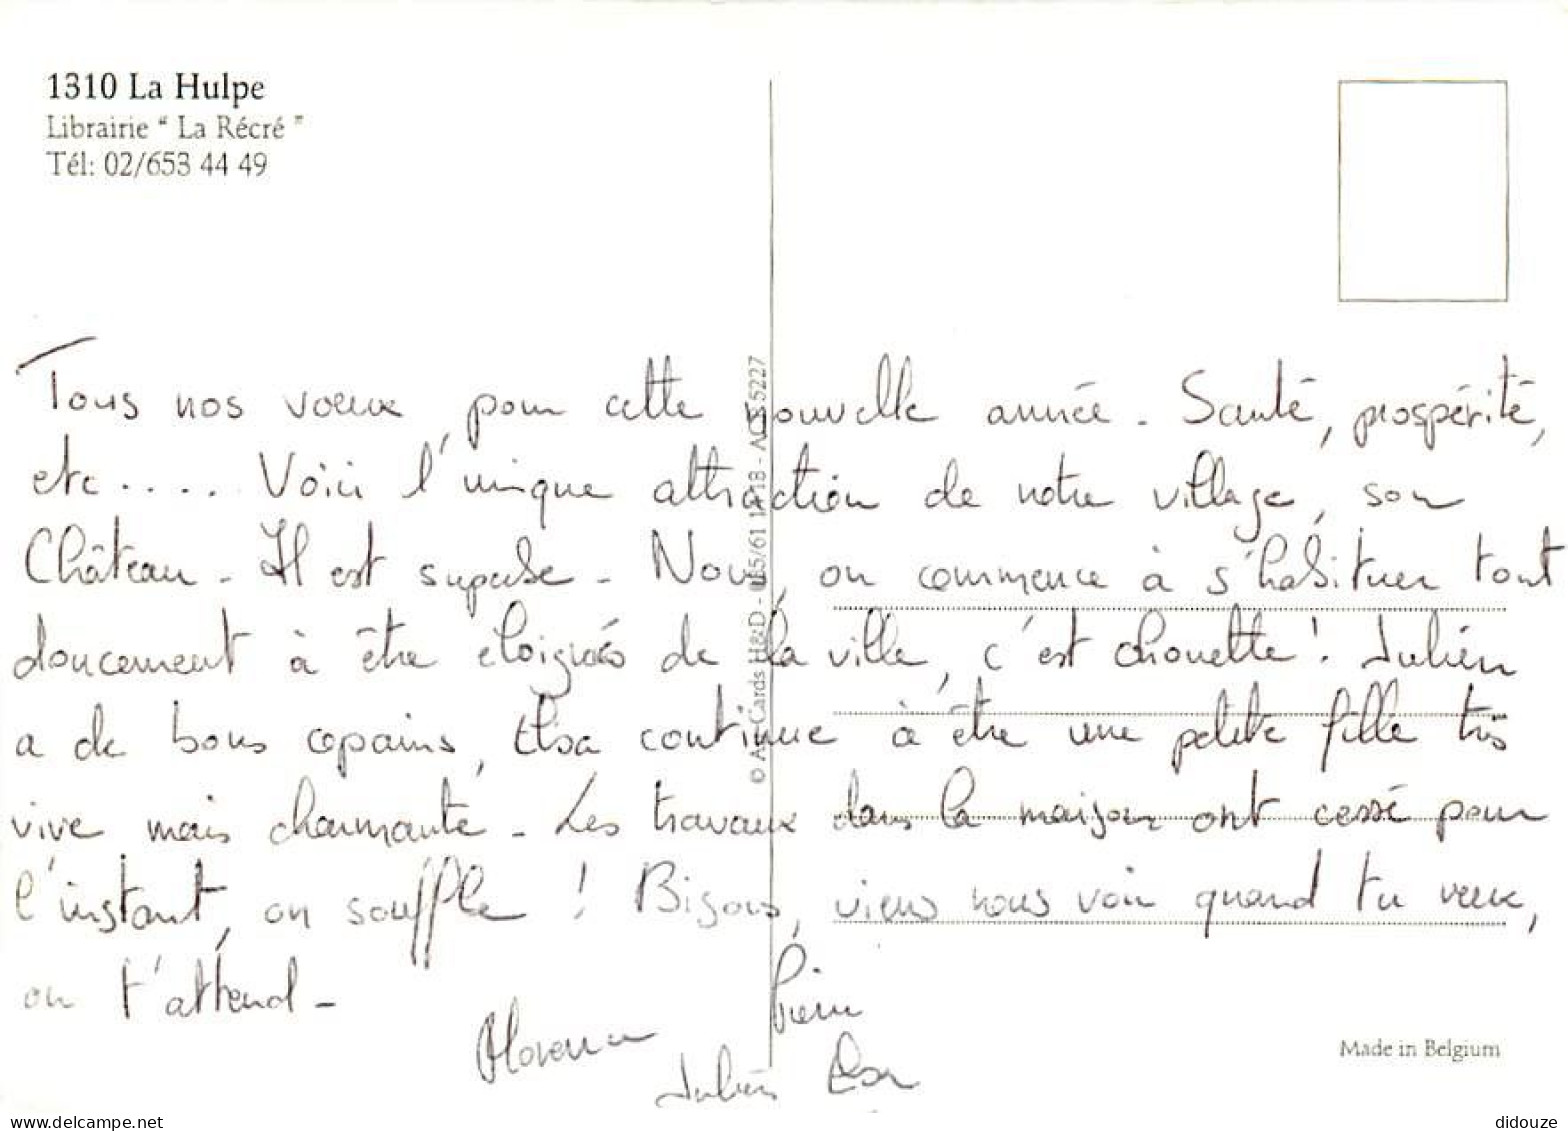 1310 La Hulpe
Librairie “ La Récré ”
Tél: 02/653 44 49
Tous nos voeux, pour cette nouvelle année. Santé, prospérité,
etc..... Voici l'unique attraction de notre village, son
Château - Il est superbe - Nous, on commence à s'habituer tout
doucement à être éloignés de la ville, c'est chouette! Julien
a de bons copains, Elsa continue à être une petite fille très
vive mais charmante - Les travaux dans la maison ont cessé pour
l'instant, on souffle ! Bisous, viens nous voir quand tu veux,
on t'attend -
Florence
Pierre
Julien Elsa
Made in Belgium
didouze